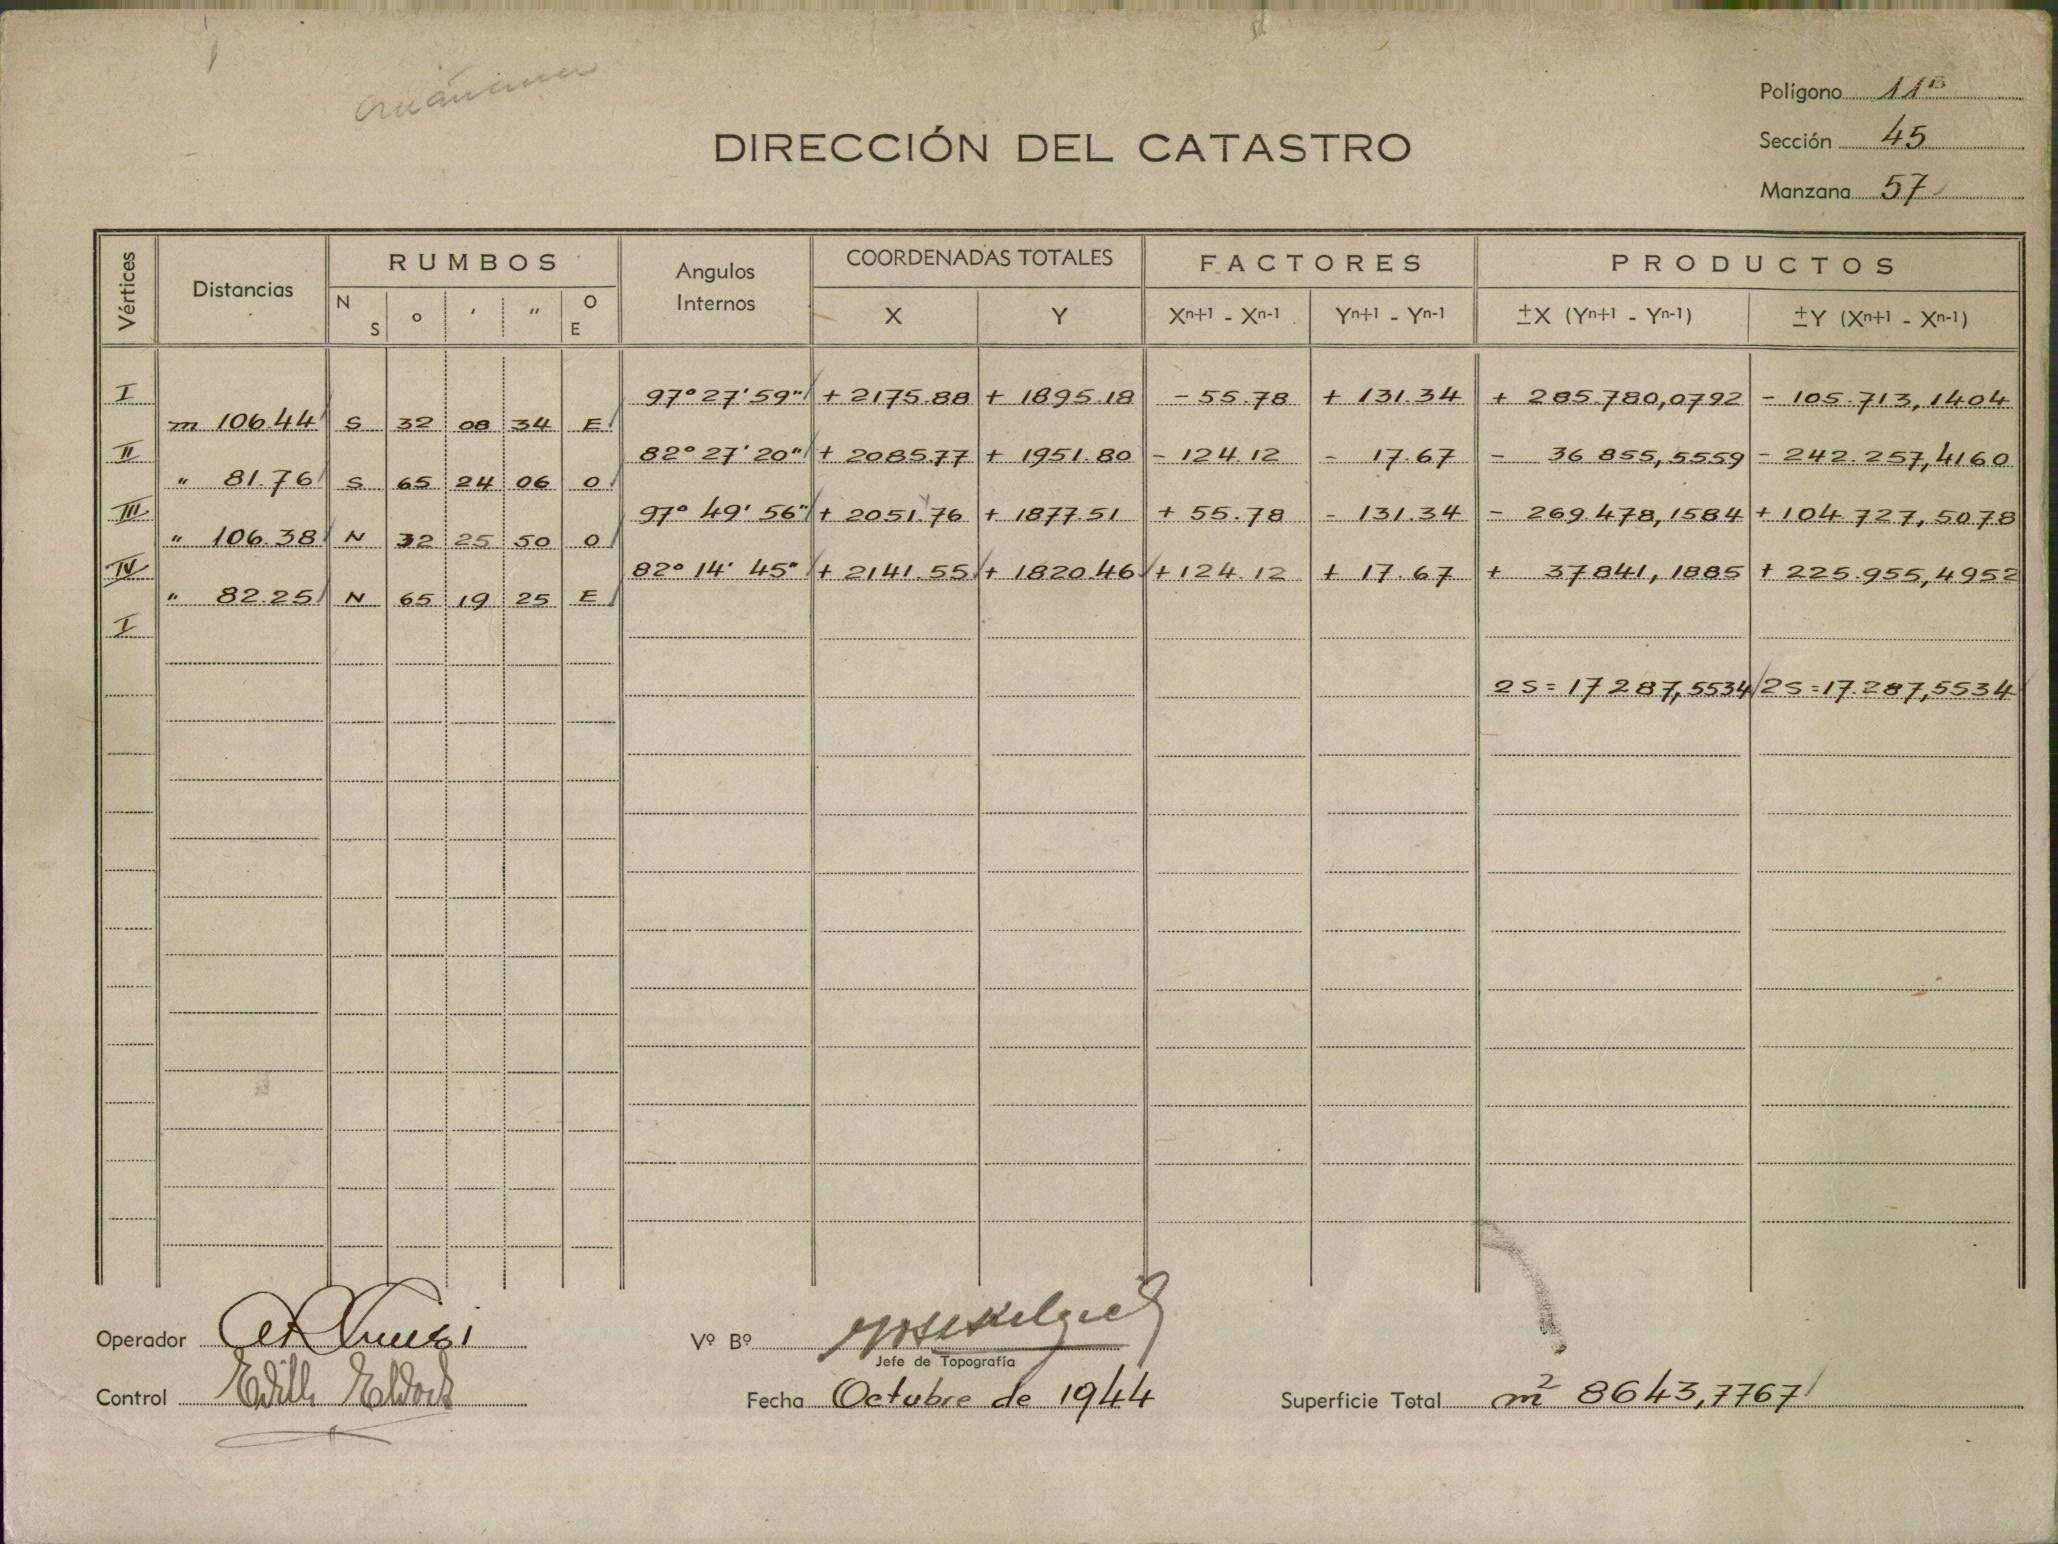 Polígono 11B
DIRECCIÓN DEL CATASTRO
Sección 45
Manzana 57
Vértices Distancias RUMBOS Angulos Internos COORDENADAS TOTALES FACTORES PRODUCTOS
N S o ′ ″ O E X Y Xn+1 - Xn-1 Yn+1 - Yn-1 ±X (Yn+1 - Yn-1) ±Y (Xn+1 - Xn-1)
I 97° 27' 59" + 2175.88 + 1895.18 - 55.78 + 131.34 + 285.780,0792 - 105.713,1404
m 106.44 S 32 08 34 E
II 82° 27' 20" + 2085.77 + 1951.80 - 124.12 - 17.67 - 36 855,5559 - 242.257,4160
" 81.76 S 65 24 06 O
III 97° 49' 56" + 2051.76 + 1877.51 + 55.78 - 131.34 - 269.478,1584 + 104.727,5078
" 106.38 N 32 25 50 O
IV 82° 14' 45" + 2141.55 + 1820.46 + 124.12 + 17.67 + 37841,1885 + 225.955,4952
" 82.25 N 65 19 25 E
I
2S = 17287,5534 2S = 17.287,5534
Operador
Vº Bº
Jefe de Topografía
Control Edith
Fecha Octubre de 1944
Superficie Total m2 8643,7767